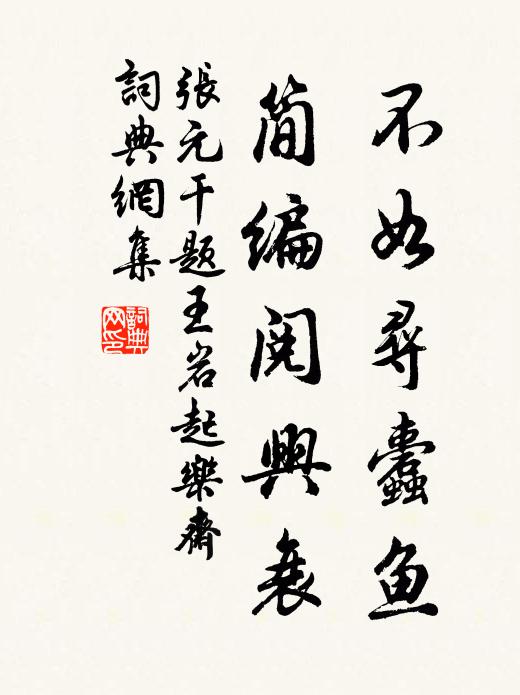 不如尋蠹魚
簡編閱興衰
張元干題王岩起樂齋
詞典網集
詞典网印